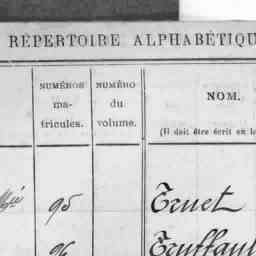 RÉPERTOIRE ALPHABÉTIQU
NUMÉROS
ma-
tricules.
NUMÉRO
du
volume.
NOM.
(Il doit être écrit en
95
Truet
96
Truffau